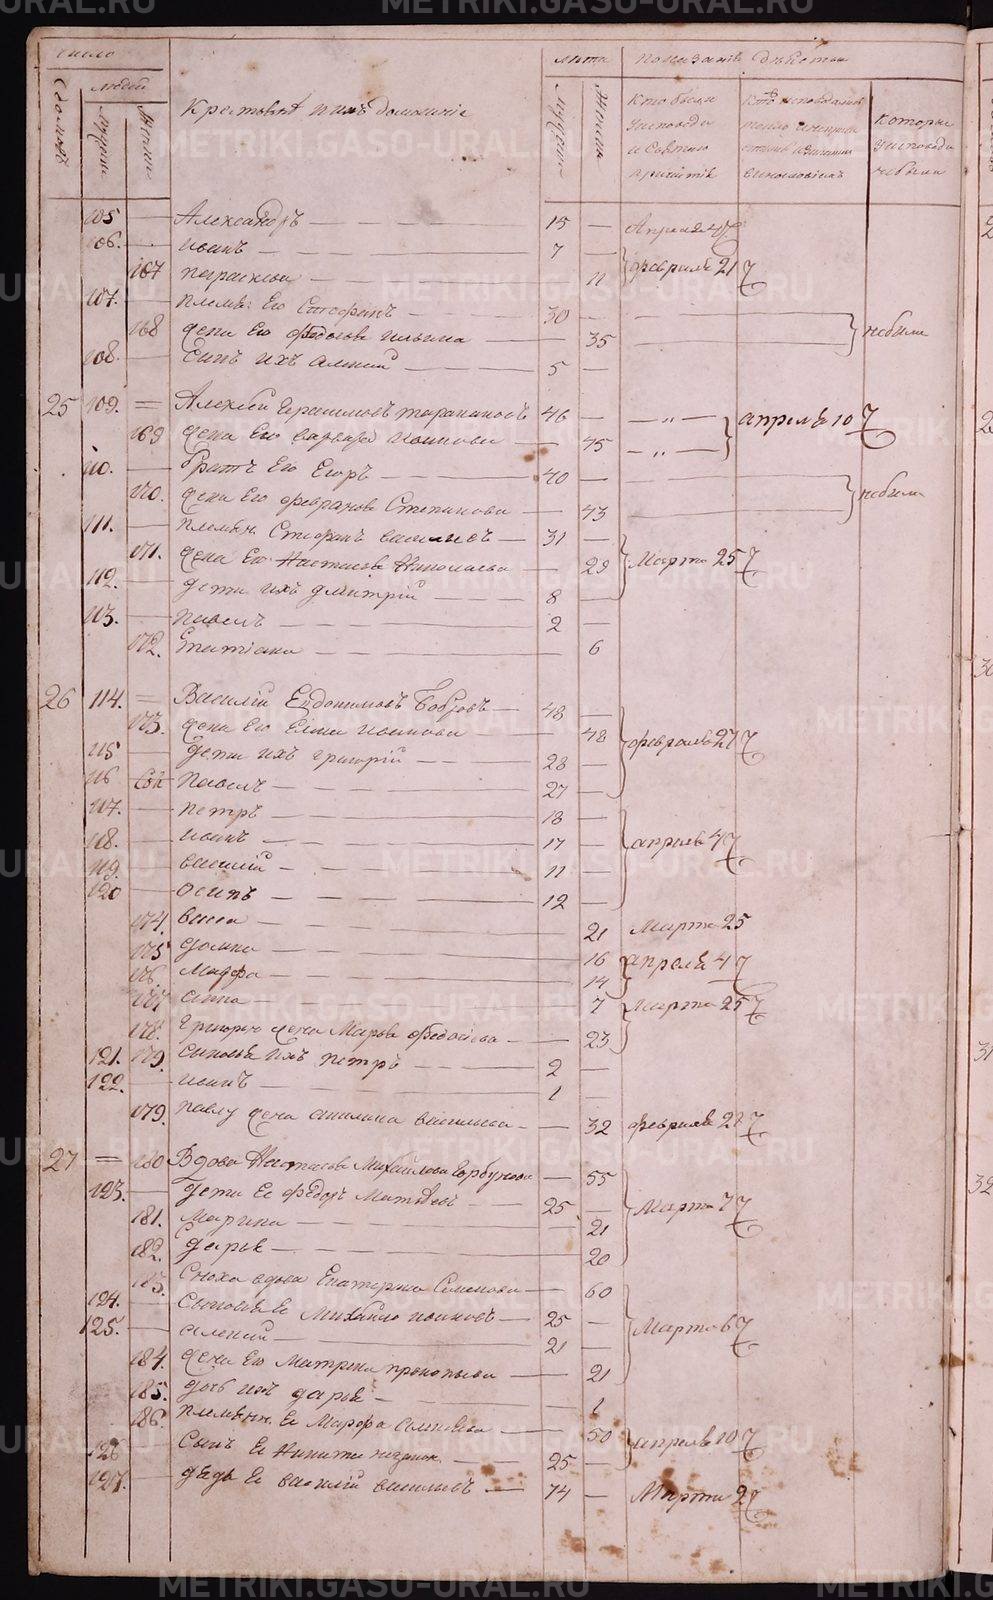 METRIKI.GASO-URAL.RU
число
людей
домовъ
мужска
женска
Крестьяне и ихъ домашніе
лѣта
мужеска
женска
показаніе дѣйства
Кто были у исповеди и святаго причастія
Кто исповедались токмо
Которые у исповеди небыли
105 — Александръ — 15 — Апреля 4
106. — Иванъ — 7 —
167 Параскева — 11 февраля 21
107. — племян: Его Стефанъ — 30 —
168 жена Его Федосья Ильина — 35 небыли
108. — Сынъ ихъ Алексей — 5 —
25 109. = Алексей Герасимовъ Таракановъ 46 — „ — апреля 10
169 жена Его Варвара Иванова — 45 — „ —
110. — братъ Его Егоръ — 40 —
170. жена Его Степанова — 43 небыли
111. — племян. Стефанъ Васильевъ — 31 —
171. жена Его Настасья Николаева — 29 Марта 25
112. — дети ихъ Дмитрій — 8 —
113. — Павелъ — 2 —
172. Татіана — 6
26 114. = Василій Евдокимовъ Бобровъ — 48 —
173. жена Его Елена Иванова — 48 февраля 27
115 — дети ихъ Григорій — 28 —
116 Павелъ — 27 —
117. — Петръ — 18 —
118. — Иванъ — 17 — апреля 4
119. — Василій — 11 —
120 — Осипъ — 12 —
174. Васса — 21 Марта 25
175 Домна — 16 апреля 4
176. Марфа — 14
177 Анна — 7 Марта 25
178. Григорью жена Марья Федосіева — 23
121. 179. Сыновья ихъ Петръ — 2 —
122. — Иванъ — 1 —
179. Павлу жена Акилина Васильева — 32 февраля 28
27 = 180 Вдова Настасья Михайлова Горбунова — 55
123. — дети Ее Федоръ Матвеевъ — 25 — Марта 7
181. Марина — 21
182. Дарья — 20
183. Сноха вдова Екатерина Семенова — 60
124. — Сыновья Ее Михайло Ивановъ — 25 —
125. — Алексей — 21 — Марта 6
184. жена Его Матрена Прокопьева — 21
185. дочь ихъ Дарья — 1
186. племянн. Ее Марфа — 50 апреля 10
126 — Сынъ Ее Никита — 25 —
127. — дядя Ее Василій Васильевъ — 74 — Марта 2